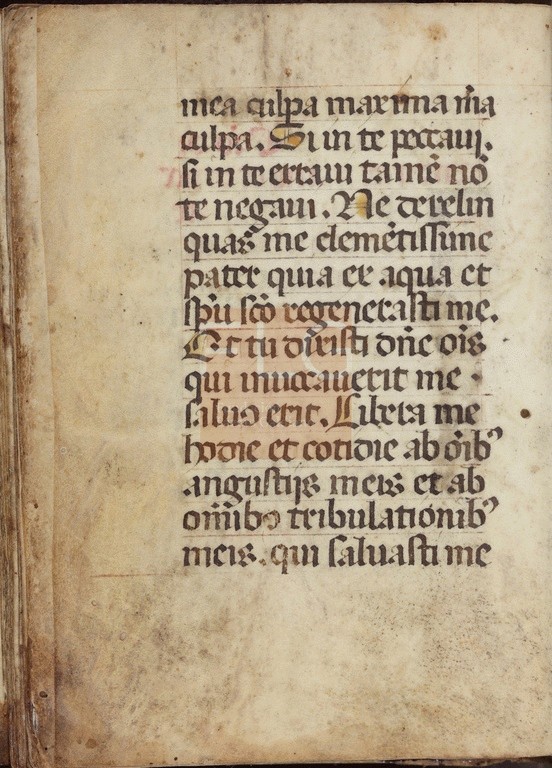 mea culpa maxima m̃a
culpa. Si in te peccaui.
si in te erraui tamẽ nõ
te negaui. Ne derelin
quas me clemẽtissime
pater quia ex aqua et
sp̃u sc̃o regenerasti me.
Et tu dixisti dñe oĩs
qui inuocauerit me
saluus erit. Libera me
hodie et cotidie ab oĩbꝰ
angustijs meis et ab
om̃ibꝰ tribulationibꝰ
meis. qui saluasti me